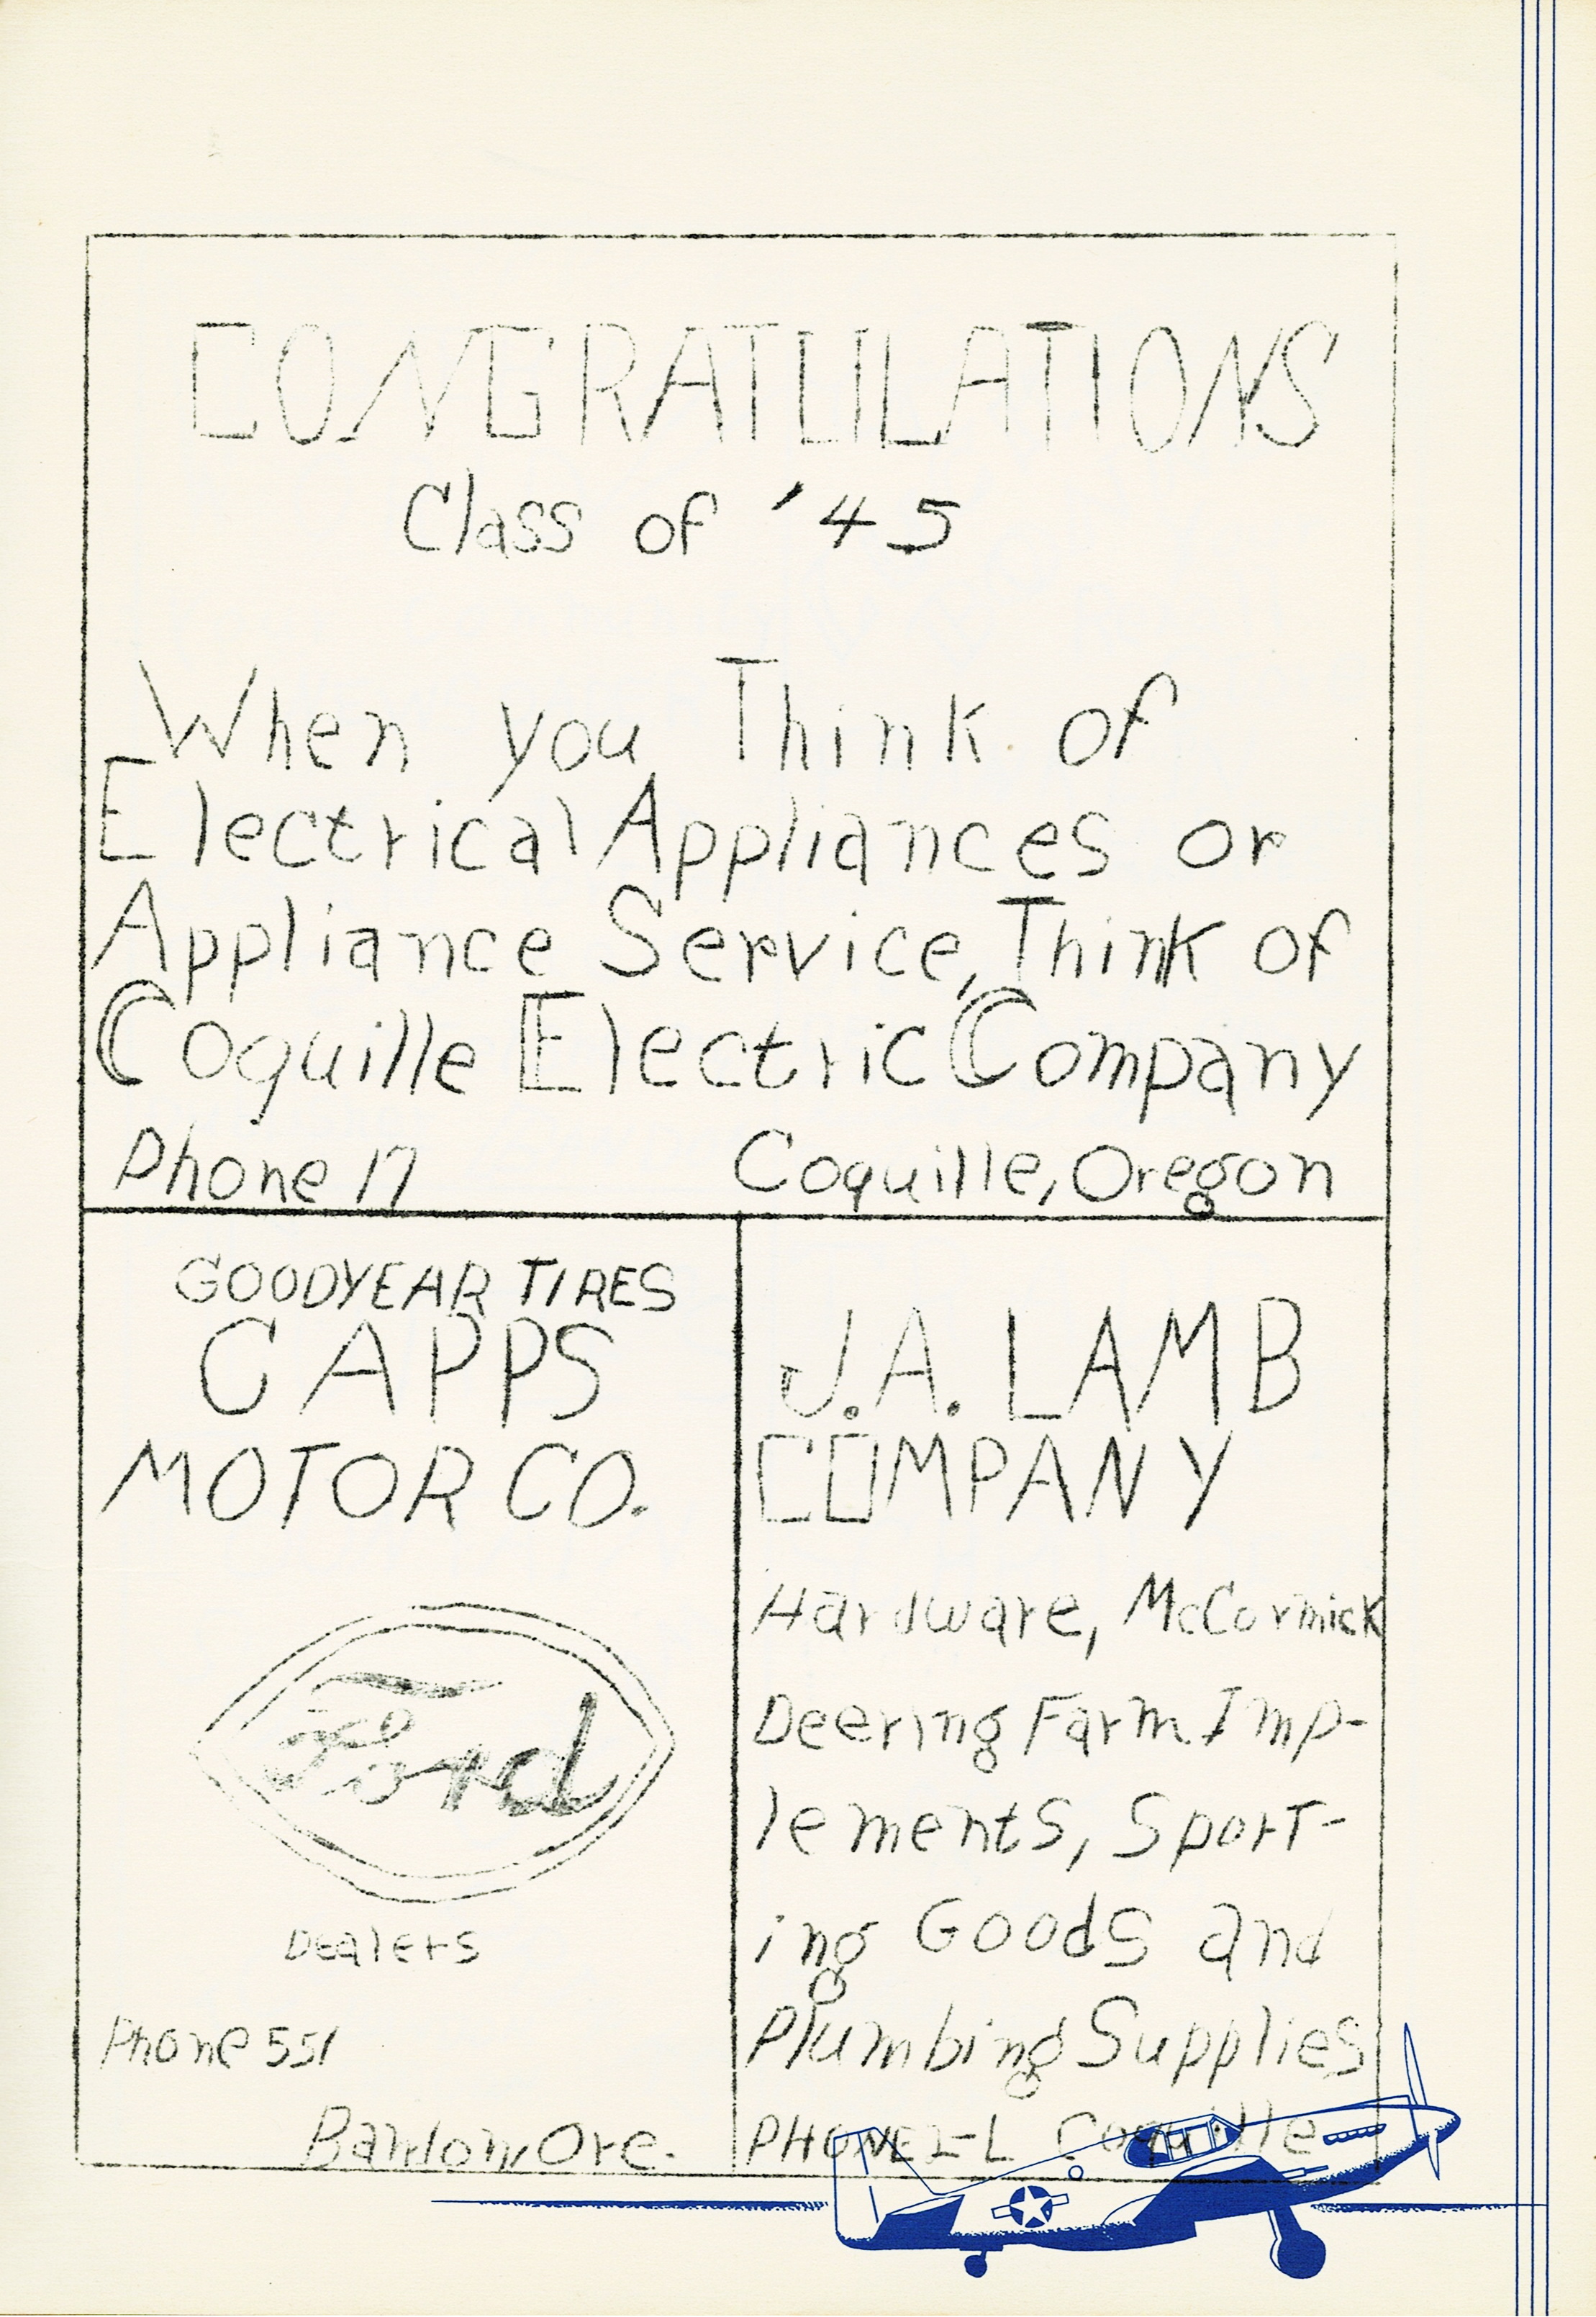 CONGRATULATIONS
Class of '45
When you Think of
Electrical Appliances or
Appliance Service, Think of
Coquille Electric Company
Phone 17
Coquille, Oregon
GOODYEAR TIRES
CAPPS
MOTOR CO.
Ford
Dealers
Phone 551
Ore.
J.A. LAMB
COMPANY
Hardware, McCormick
Deering Farm Imp-
lements, Sport-
ing Goods and
Plumbing Supplies
PHONE Coquille